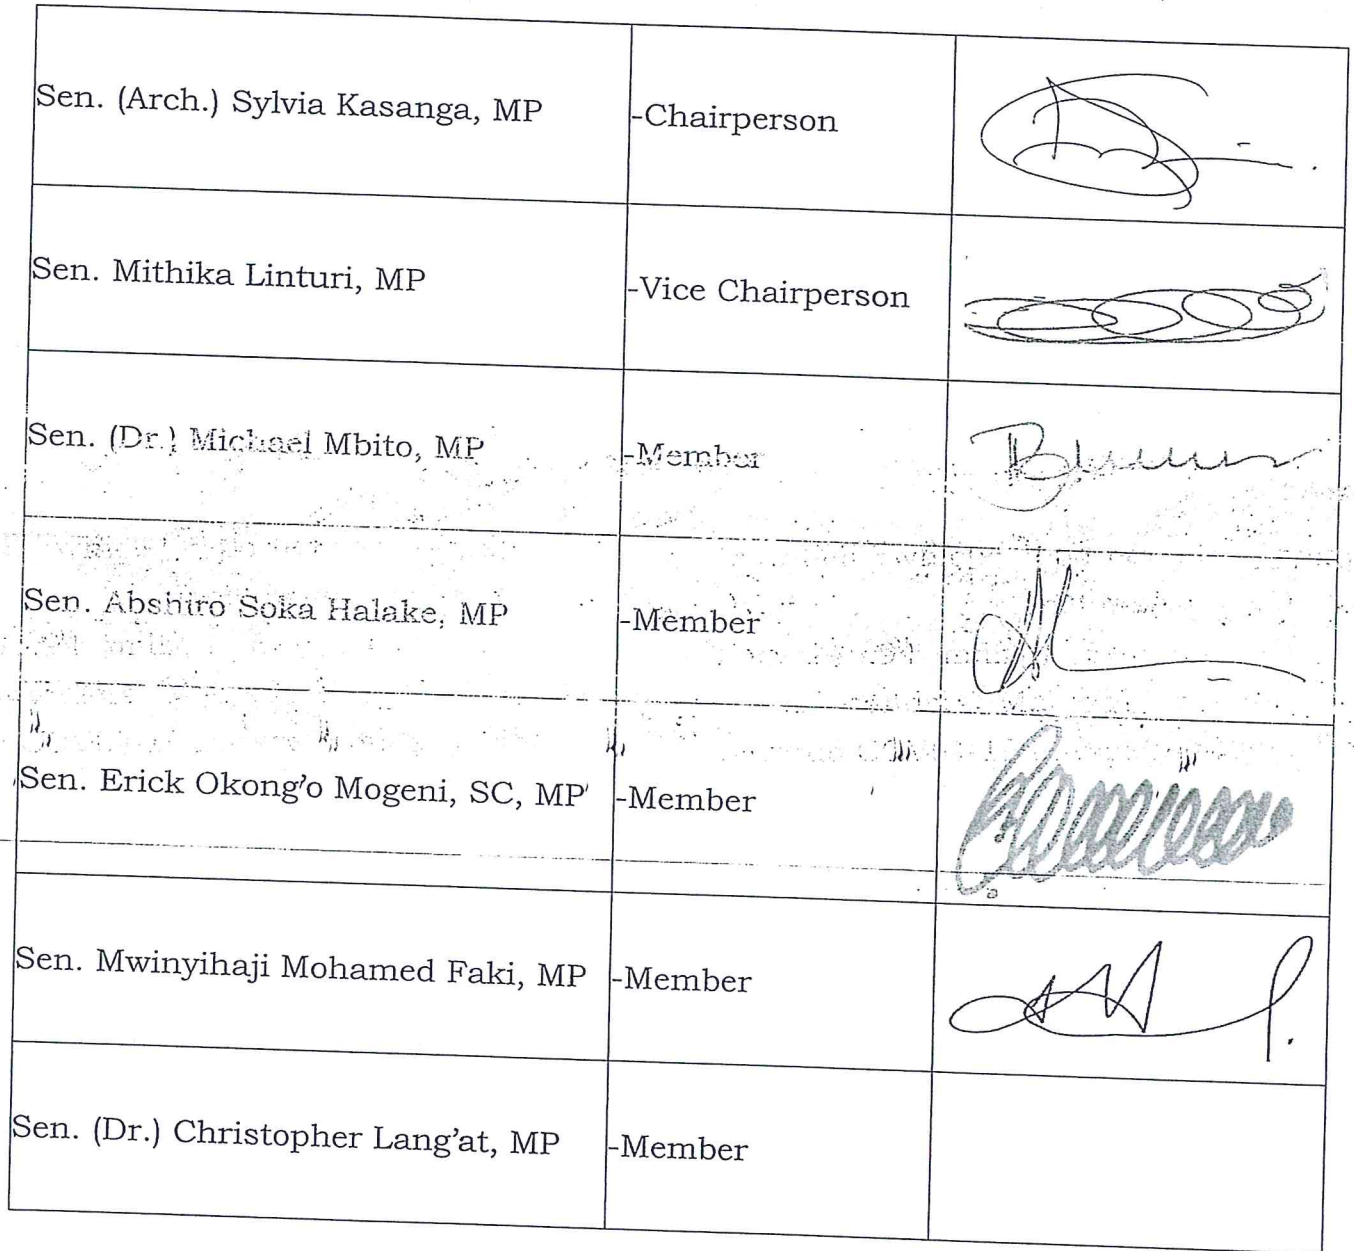 Sen. (Arch.) Sylvia Kasanga, MP -Chairperson
Sen. Mithika Linturi, MP -Vice Chairperson
Sen. (Dr.) Michael Mbito, MP -Member
Sen. Abshiro Soka Halake, MP -Member
Sen. Erick Okong'o Mogeni, SC, MP -Member
Sen. Mwinyihaji Mohamed Faki, MP -Member
Sen. (Dr.) Christopher Lang'at, MP -Member